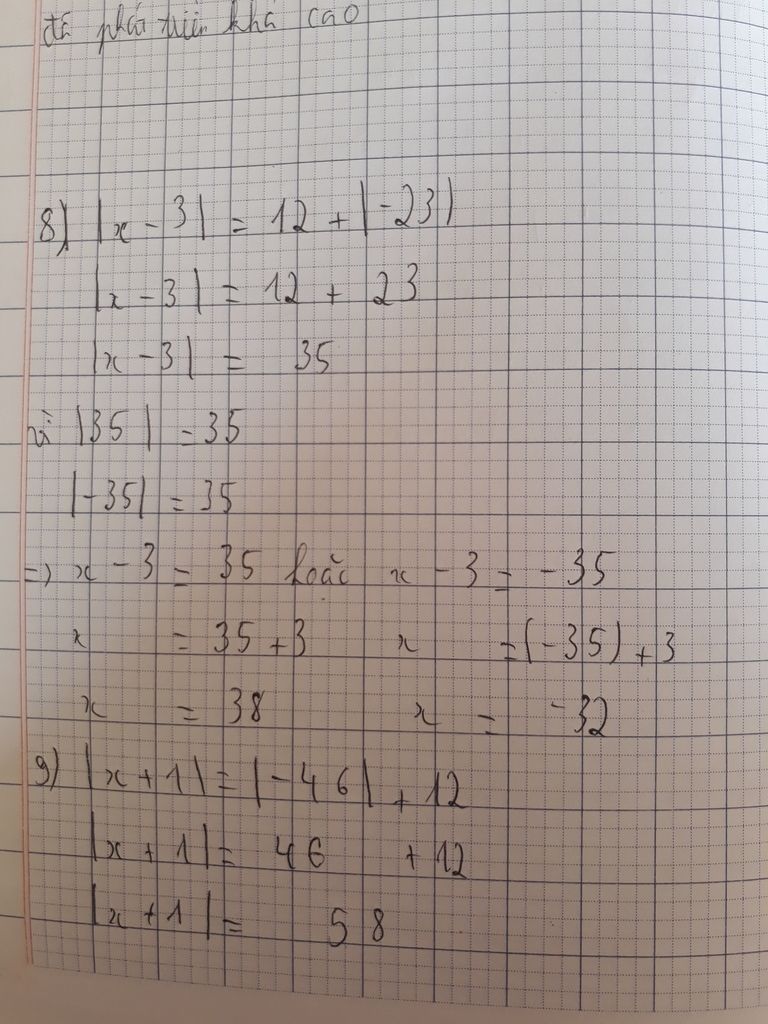 đã phát triển khá cao
8) |x - 3| = 12 + |-23|
|x - 3| = 12 + 23
|x - 3| = 35
vì |35| = 35
|-35| = 35
=> x - 3 = 35 hoặc x - 3 = -35
x = 35 + 3 x = (-35) + 3
x = 38 x = -32
9) |x + 1| = |-46| + 12
|x + 1| = 46 + 12
|x + 1| = 58